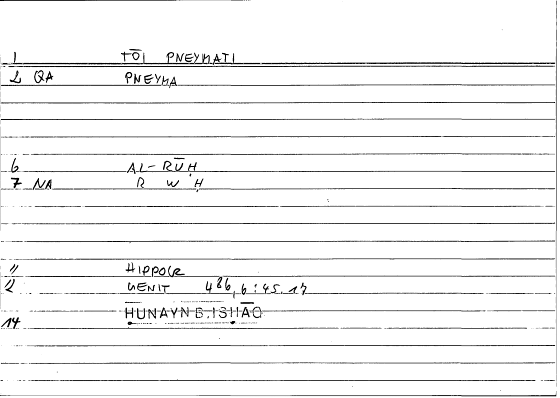 1 TŌI PNEYMATI
2 QA PNEYMA
6 AL-RŪḤ
7 NA R W Ḥ
11 HIPPOCR
12 GENIT 486,6:45.17
14 ḤUNAYN B. ISḤĀQ